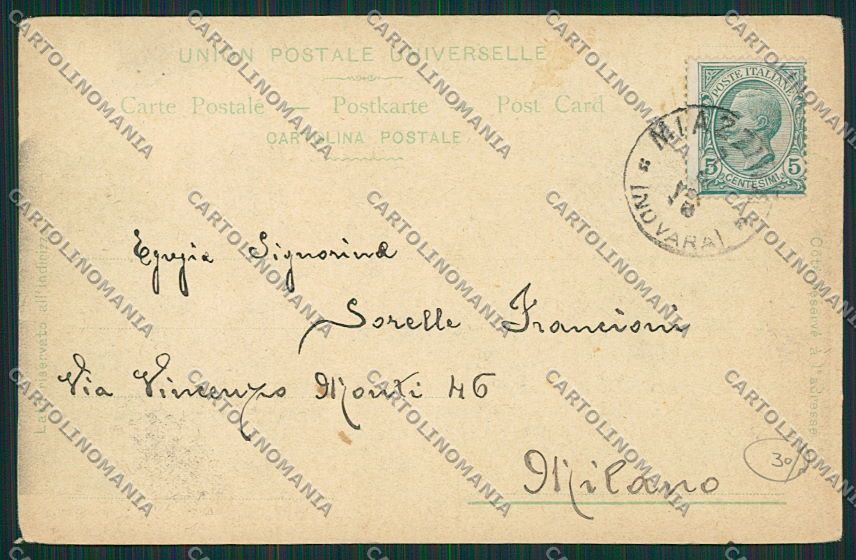 UNION POSTALE UNIVERSELLE
Carte Postale — Postkarte — Post Card
CARTOLINA POSTALE
POSTE ITALIANE
5 5
CENTESIMI
(NOVARA)
Egregie Signorine
Sorelle Francioni
Via Vincenzo Monti 46
Milano
30
Lato riservato all'indirizzo
Côté réservé à l'adresse
CARTOLINOMANIA